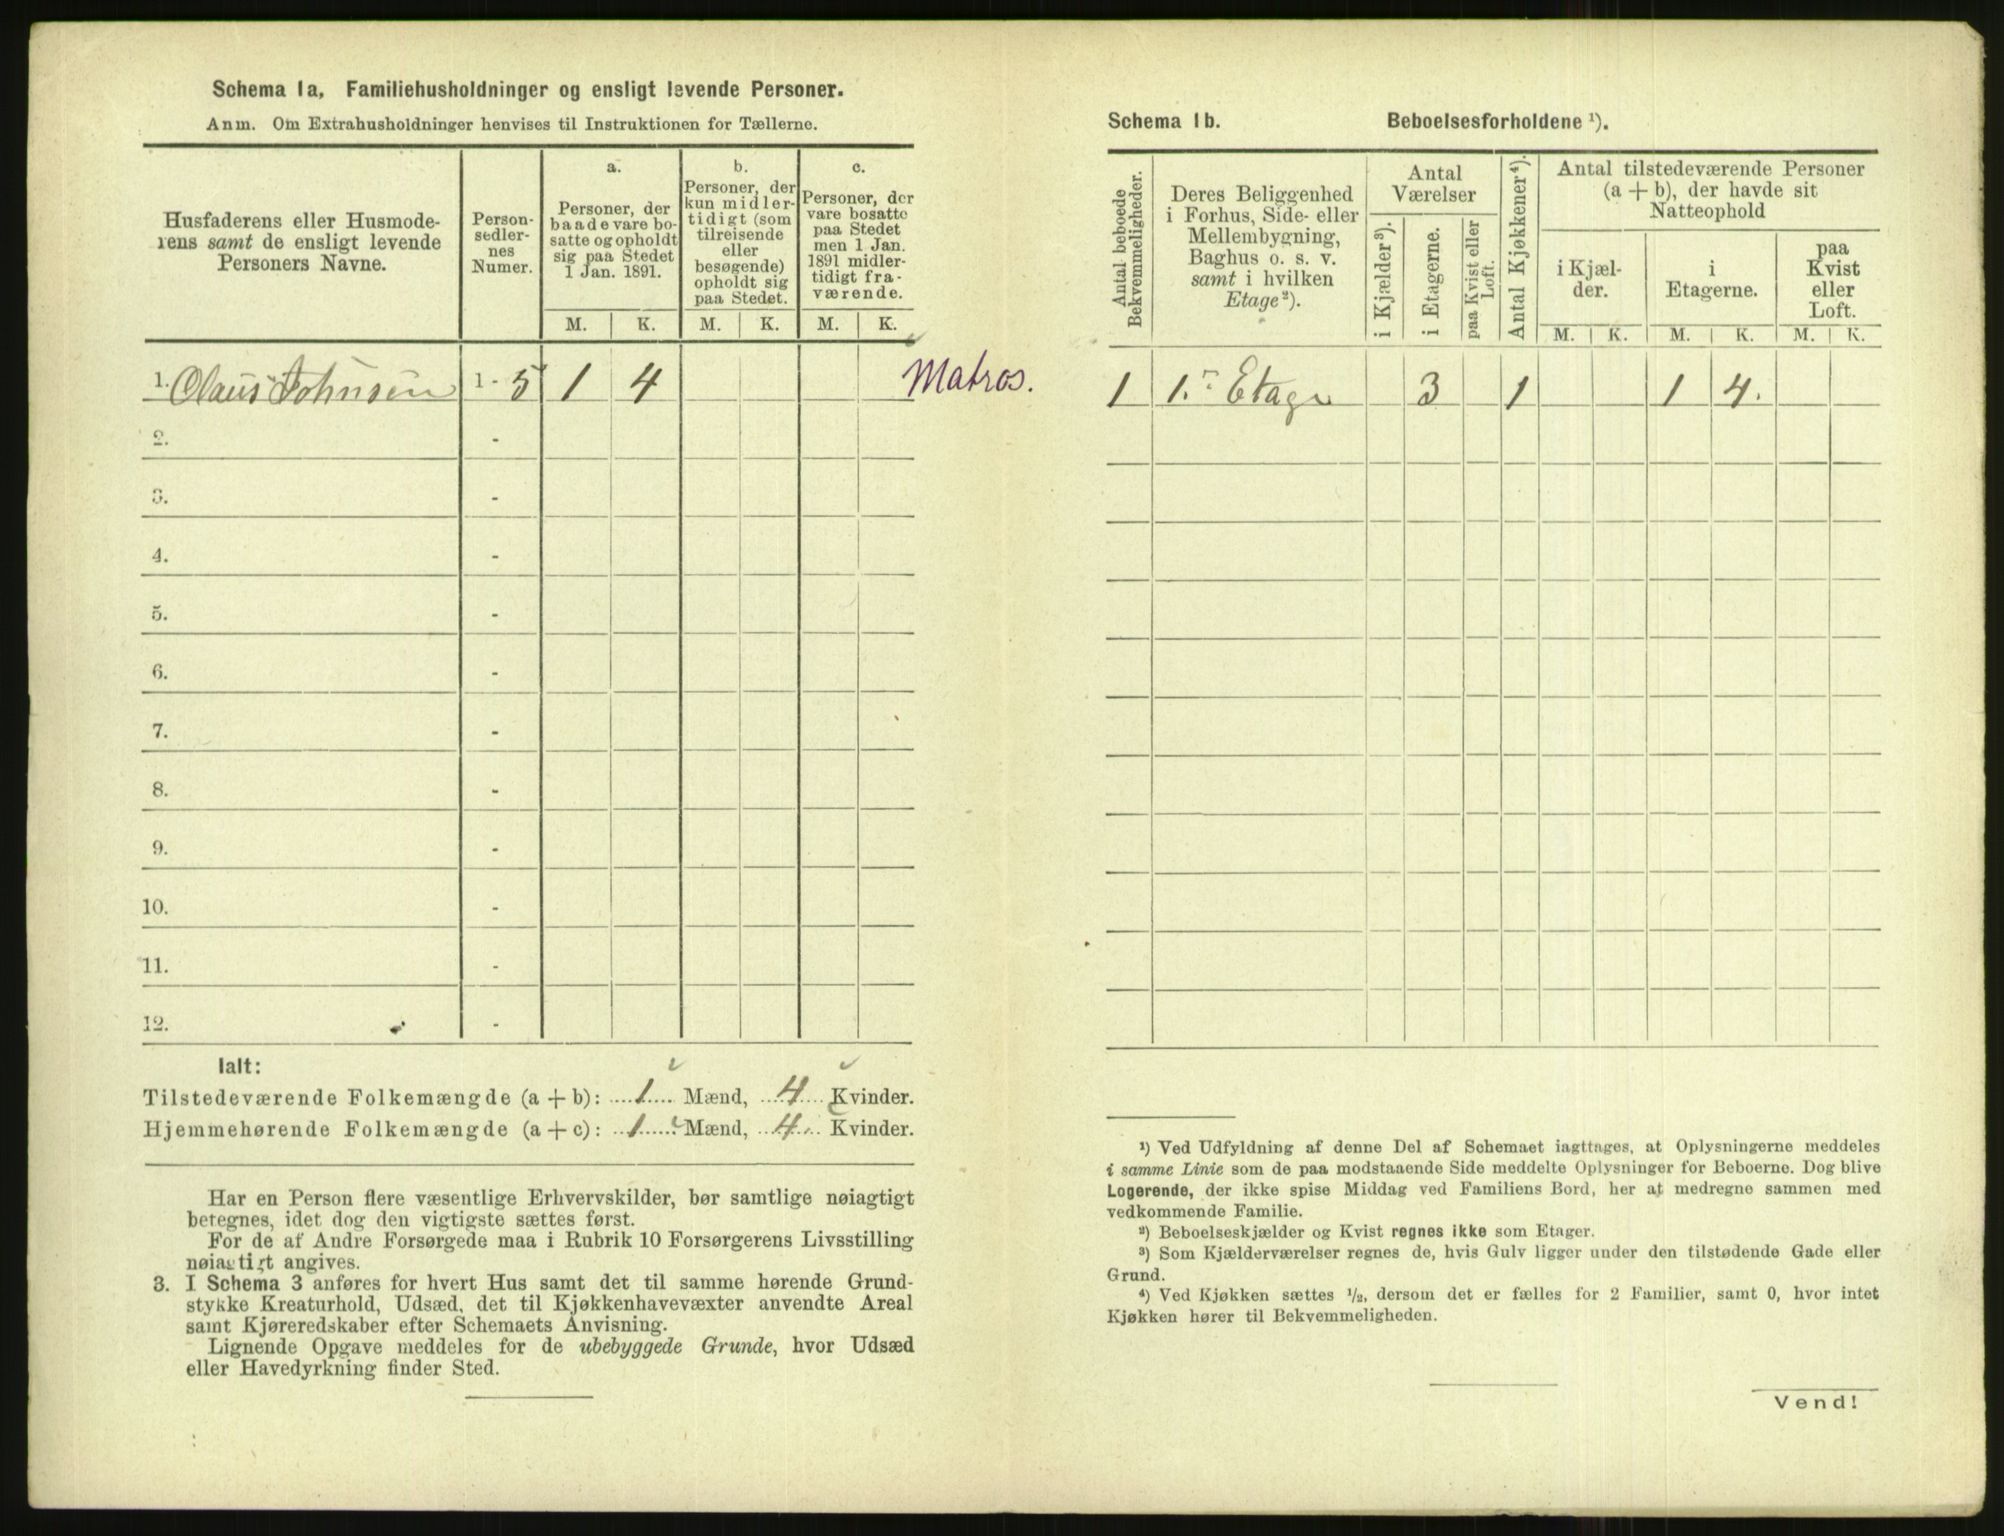 Schema 1a, Familiehusholdninger og ensligt levende Personer.
Anm. Om Extrahusholdninger henvises til Instruktionen for Tællerne.
Husfaderens eller Husmode-
rens samt de ensligt levende
Personers Navne.
Person-
sedler-
nes
Numer.
a.
Personer, der
baade vare bo-
satte og opholdt
sig paa Stedet
1 Jan. 1891.
M. K.
b.
Personer, der
kun midler-
tidigt (som
tilreisende
eller
besøgende)
opholdt sig
paa Stedet.
M. K.
c.
Personer, der
vare bosatte
paa Stedet
men 1 Jan.
1891 midler-
tidigt fra-
værende.
M. K.
1. Claus Johnsen 1 - 5 1 4 Matros.
2. -
3. -
4. -
5. -
6. -
7. -
8. -
9. -
10. -
11. -
12. -
Ialt:
Tilstedeværende Folkemængde (a + b): 1 Mænd, 4 Kvinder.
Hjemmehørende Folkemængde (a + c): 1 Mænd, 4 Kvinder.
Har en Person flere væsentlige Erhvervskilder, bør samtlige nøiagtigt
betegnes, idet dog den vigtigste sættes først.
For de af Andre Forsørgede maa i Rubrik 10 Forsørgerens Livsstilling
nøiagtigt angives.
3. I Schema 3 anføres for hvert Hus samt det til samme hørende Grund-
stykke Kreaturhold, Udsæd, det til Kjøkkenhavevæxter anvendte Areal
samt Kjøreredskaber efter Schemaets Anvisning.
Lignende Opgave meddeles for de ubebyggede Grunde, hvor Udsæd
eller Havedyrkning finder Sted.
Schema 1b. Beboelsesforholdene ¹).
Antal beboede
Bekvemmeligheder.
Deres Beliggenhed
i Forhus, Side- eller
Mellembygning,
Baghus o. s. v.
samt i hvilken
Etage²).
Antal
Værelser
i Kjælder³).
i Etagerne.
paa Kvist eller
Loft.
Antal Kjøkkener⁴).
Antal tilstedeværende Personer
(a + b), der havde sit
Natteophold
i Kjæl-
der.
i
Etagerne.
paa
Kvist
eller
Loft.
M. K. M. K. M. K.
1 1.ᵉ Etage 3 1 1 4.
¹) Ved Udfyldning af denne Del af Schemaet iagttages, at Oplysningerne meddeles
i samme Linie som de paa modstaaende Side meddelte Oplysninger for Beboerne. Dog blive
Logerende, der ikke spise Middag ved Familiens Bord, her at medregne sammen med
vedkommende Familie.
²) Beboelseskjælder og Kvist regnes ikke som Etager.
³) Som Kjælderværelser regnes de, hvis Gulv ligger under den tilstødende Gade eller
Grund.
⁴) Ved Kjøkken sættes ½, dersom det er fælles for 2 Familier, samt 0, hvor intet
Kjøkken hører til Bekvemmeligheden.
Vend!